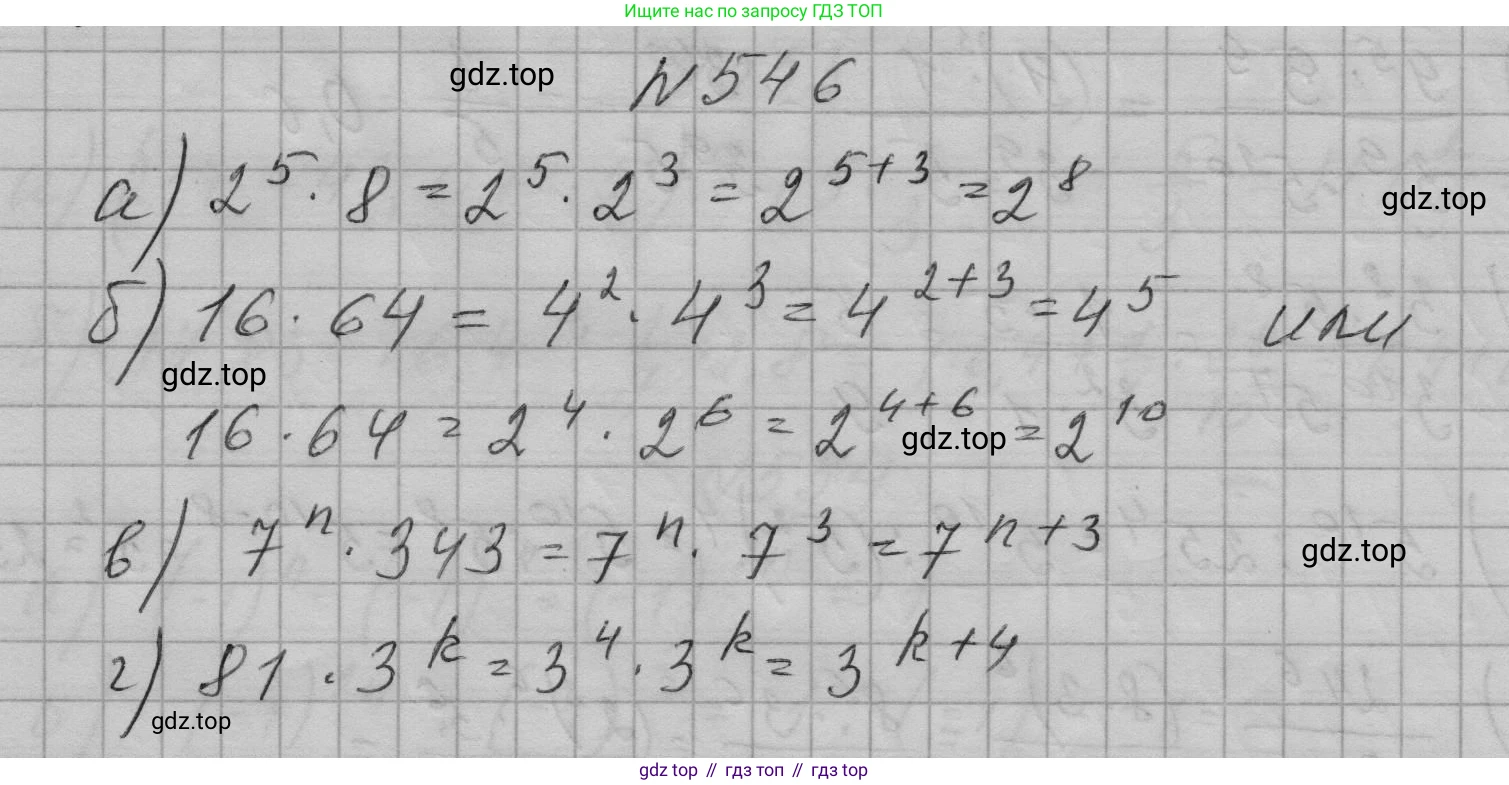 Ищите нас по запросу ГДЗ ТОП
gdz.top N 546
а) 2⁵ · 8 = 2⁵ · 2³ = 2⁵⁺³ = 2⁸ gdz.top
б) 16 · 64 = 4² · 4³ = 4²⁺³ = 4⁵ или
gdz.top
16 · 64 = 2⁴ · 2⁶ = 2⁴⁺⁶ = 2¹⁰
gdz.top
в) 7ⁿ · 343 = 7ⁿ · 7³ = 7ⁿ⁺³ gdz.top
г) 81 · 3ᵏ = 3⁴ · 3ᵏ = 3ᵏ⁺⁴
gdz.top
gdz top // гдз топ // гдз top